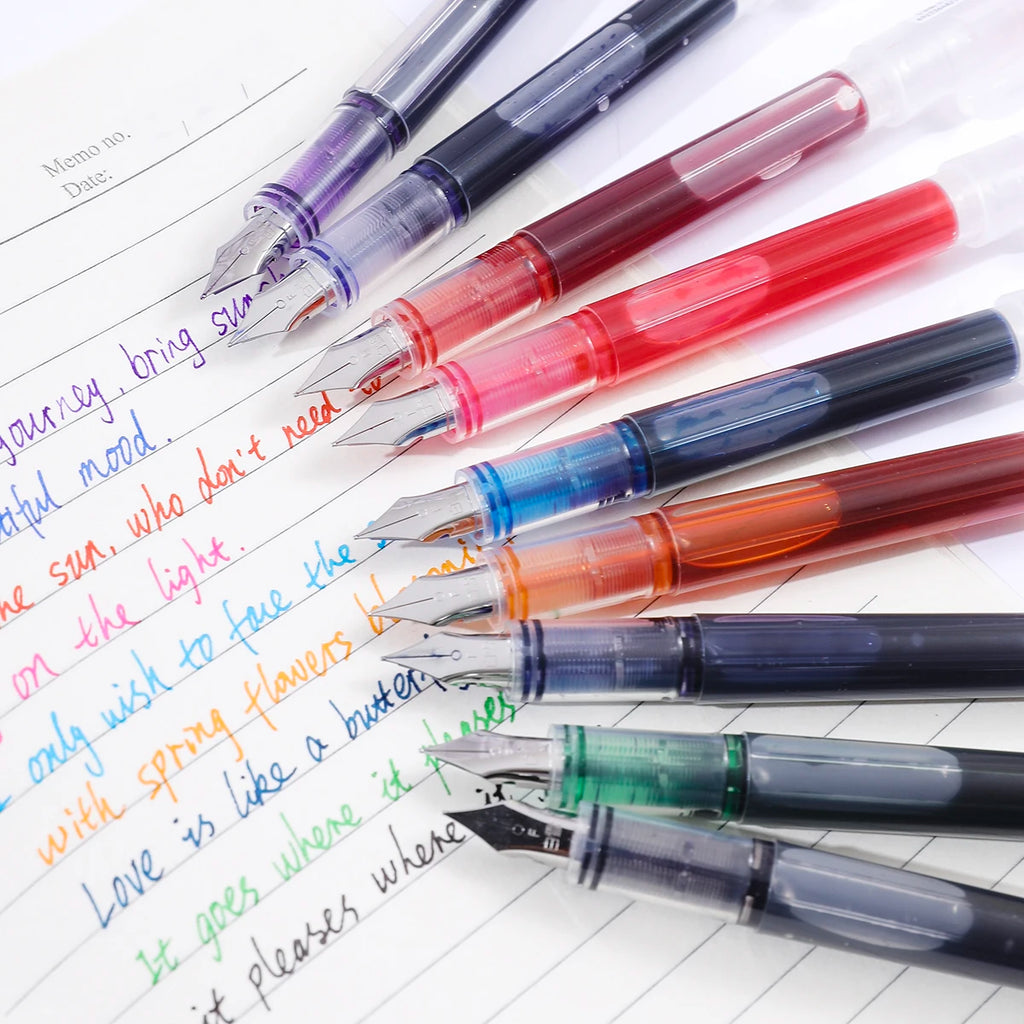 Memo no. / /
Date:
journey, bring sun
mood.
sun, who don't need to
on the light.
only wish to face the
with spring flowers
Love is like a butterfly
It goes where it pleases
it pleases where it
F
F